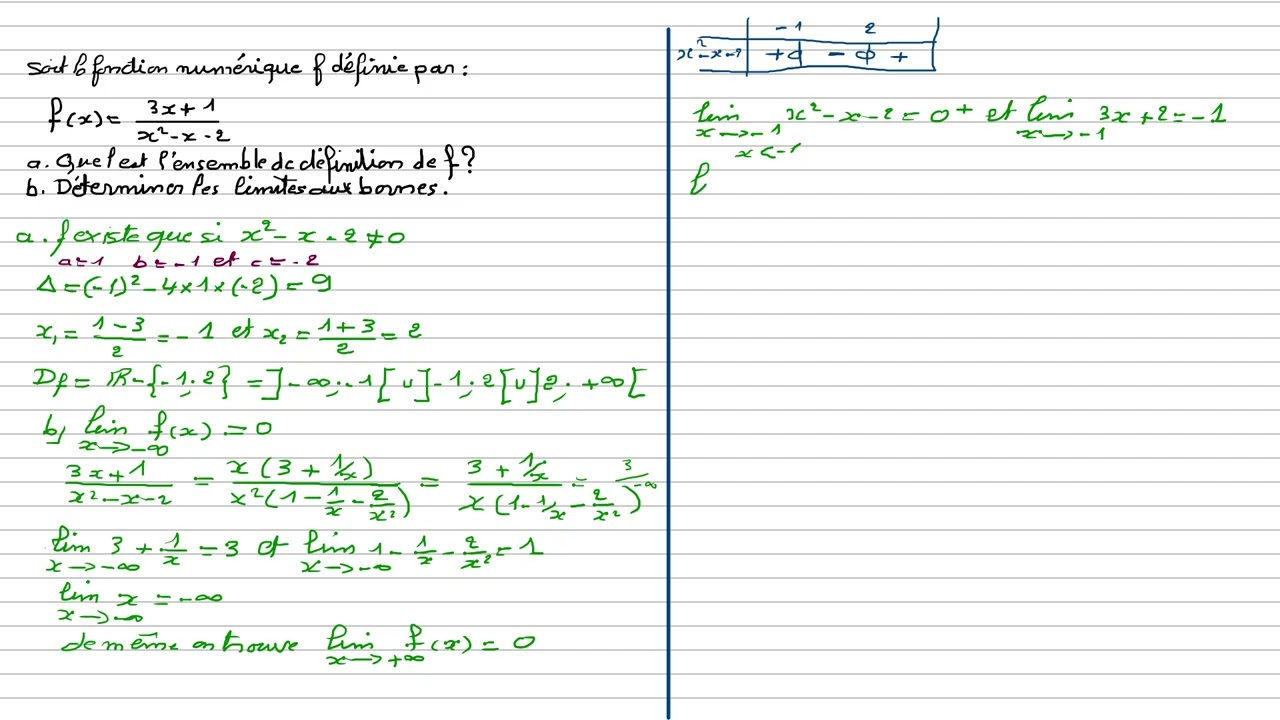 soit la fonction numérique f définie par :
f(x) = (3x+1)/(x²-x-2)
a. Quel est l'ensemble de définition de f?
b. Déterminer les limites aux bornes.
a. f existe que si x²-x-2≠0
a=1 b=-1 et c=-2
Δ=(-1)²-4×1×(-2)=9
x₁ = (1-3)/2 = -1 et x₂ = (1+3)/2 = 2
Df = ℝ-{-1;2} = ]-∞;-1[ ∪ ]-1;2[ ∪ ]2;+∞[
b) lim x→-∞ f(x) = 0
(3x+1)/(x²-x-2) = x(3+1/x)/(x²(1-1/x-2/x²)) = (3+1/x)/(x(1-1/x-2/x²)) = 3/-∞
lim x→-∞ 3+1/x = 3 et lim x→-∞ 1-1/x-2/x² = 1
lim x→-∞ x = -∞
de même on trouve lim x→+∞ f(x) = 0
-1 2
x²-x-2 + 0 - 0 +
lim x→-1 x<-1 x²-x-2 = 0+ et lim x→-1 3x+2 = -1
l